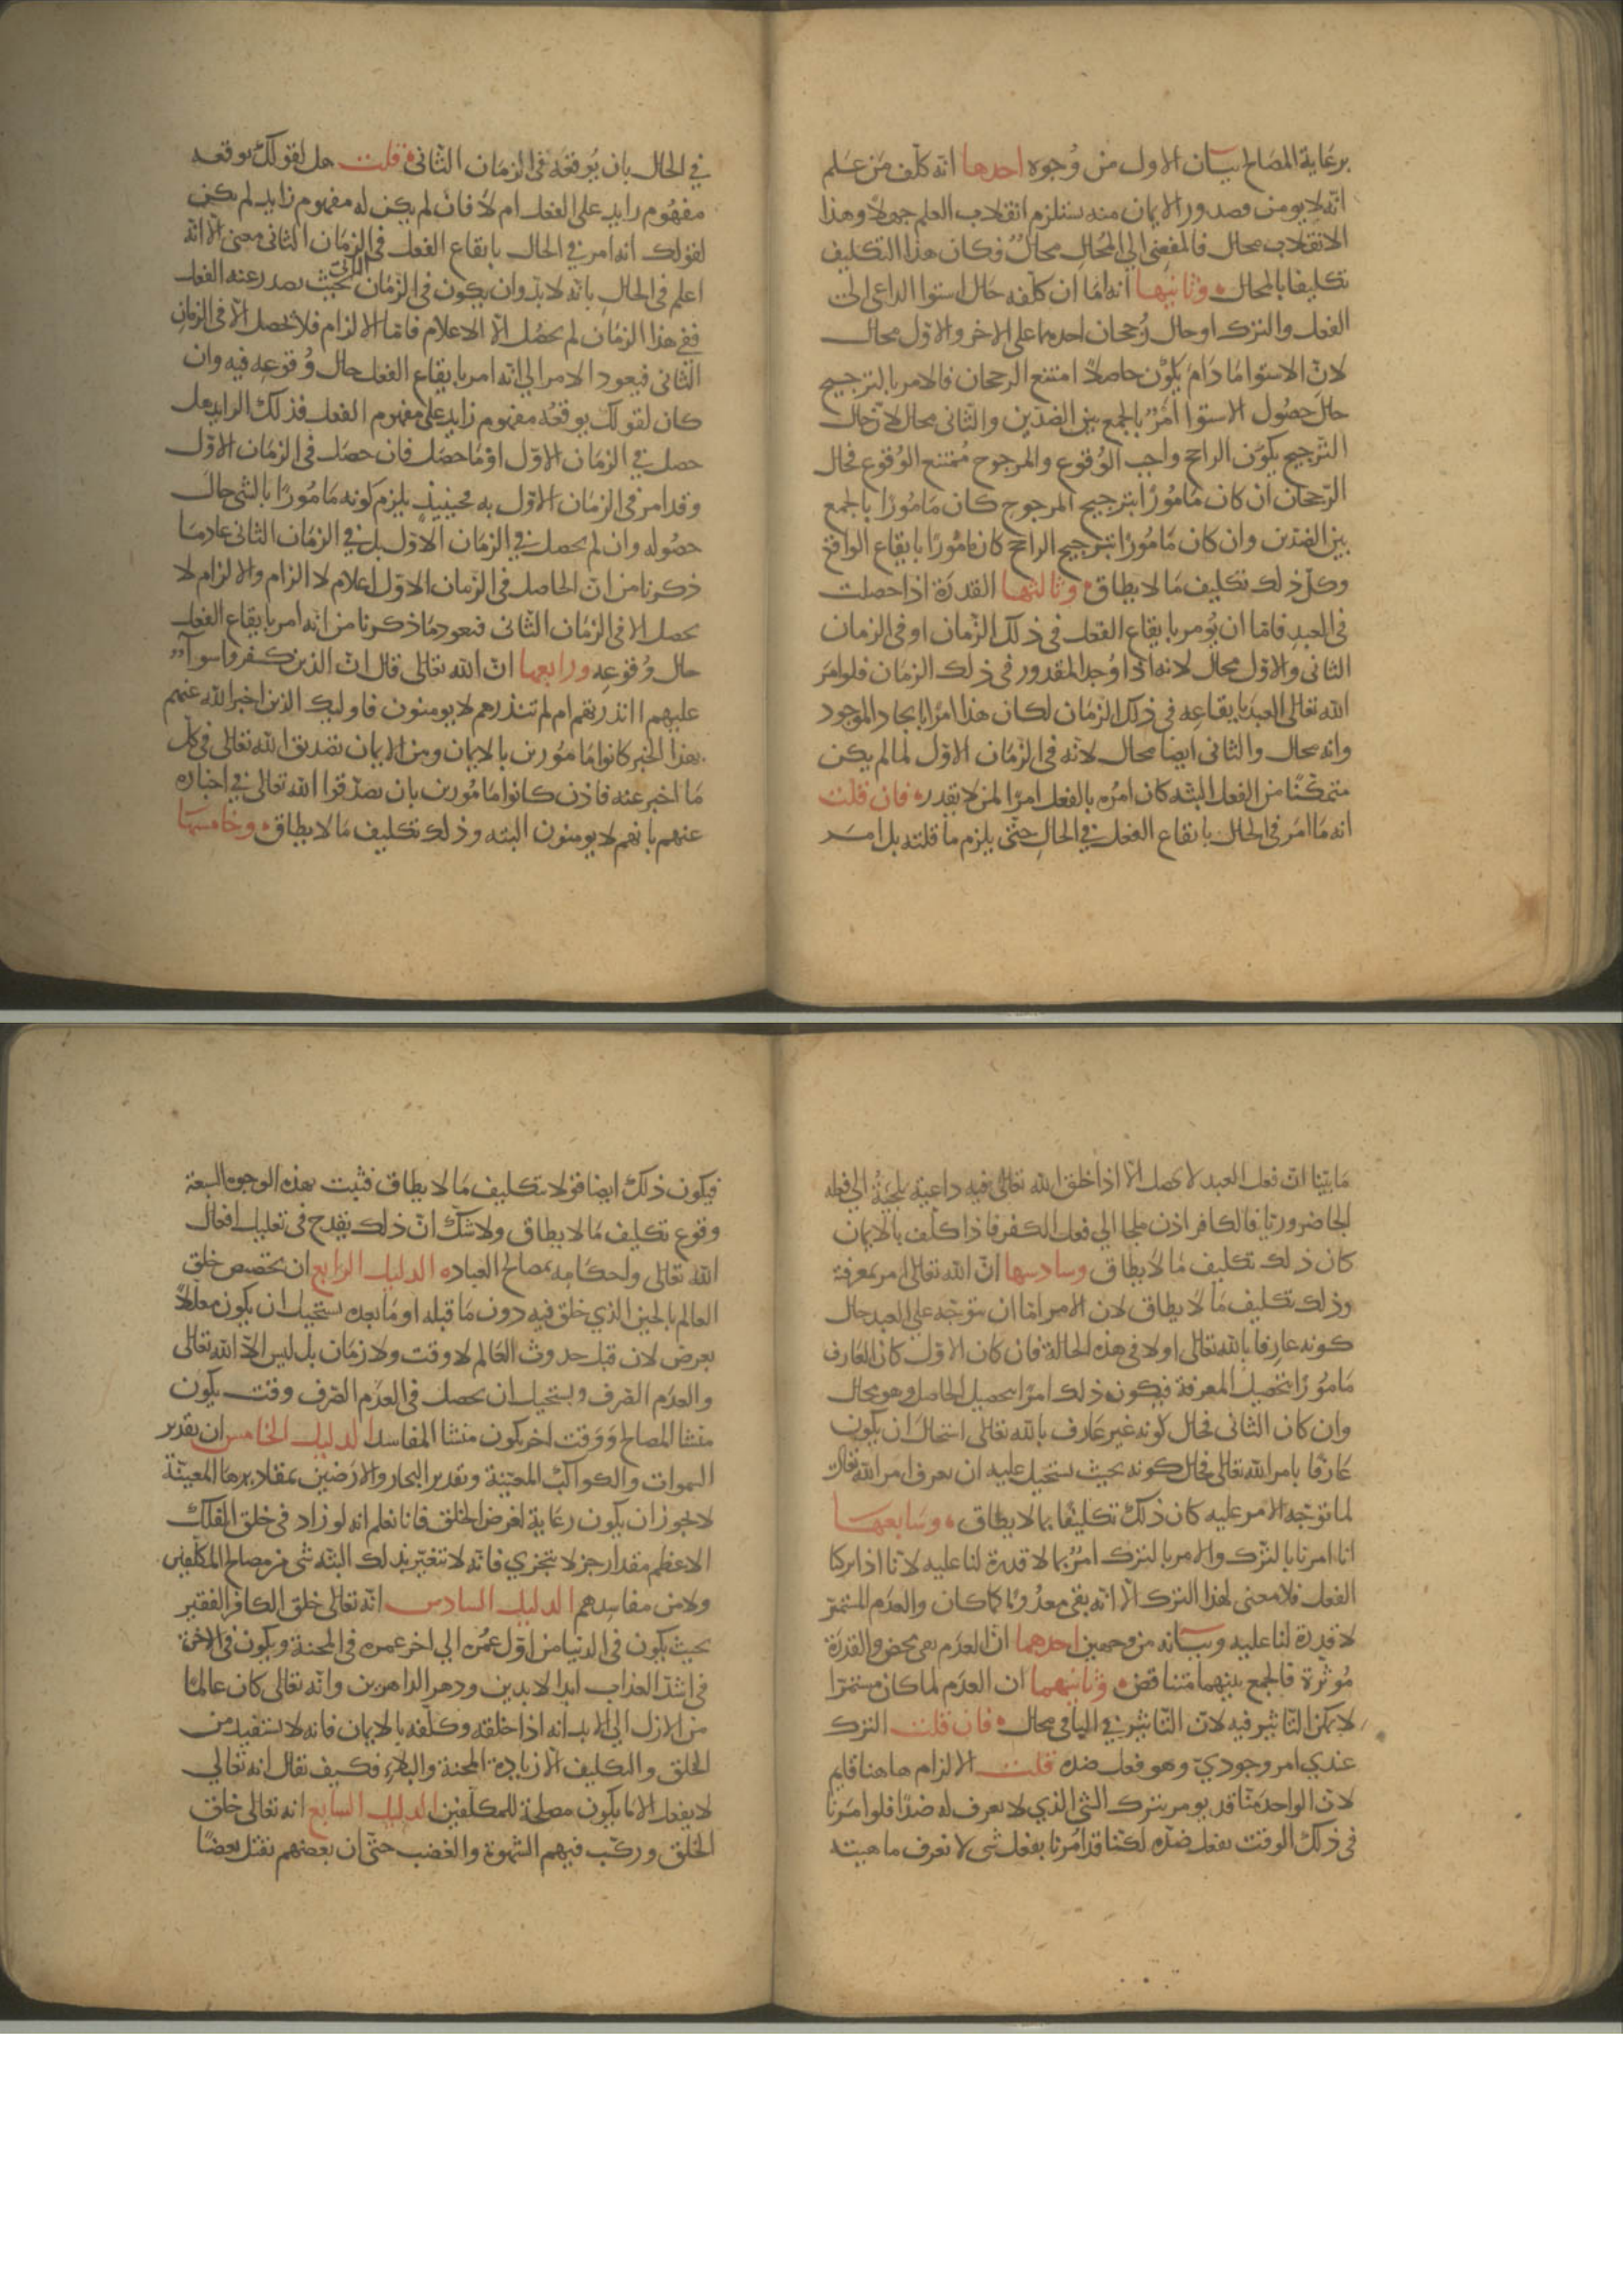 برعاية المصالح بيان الاول من وجوه احدها انه كلف من علم
انه لا يومن وصدور الايمان منه يستلزم انقلاب العلم جهلا وهذا
الانقلاب محال فالمفضي الى المحال محال وكان هذا التكليف
تكليفا بالمحال وثانيها انه اما ان كلفه حال استوا الداعي الى
الفعل والترك او حال رجحان احدهما على الاخر والاول محال
لان الاستوا ما دام يكون حاصلا امتنع الرجحان فالامر بالترجيح
حال حصول الاستوا امر بالجمع بين الضدين والثاني محال لان حال
الترجيح يكون الراجح واجب الوقوع والمرجوح ممتنع الوقوع فحال
الرجحان ان كان مامورا بترجيح المرجوح كان مامورا بالجمع
بين الضدين وان كان مامورا بترجيح الراجح كان مامورا بايقاع الواقع
وكل ذلك تكليف ما لا يطاق وثالثها القدرة اذا حصلت
في العبد فاما ان يومر بايقاع الفعل في ذلك الزمان او في الزمان
الثاني والاول محال لانه اذا وجد المقدور في ذلك الزمان فلو امر
الله تعالى العبد بايقاعه في ذلك الزمان لكان هذا امرا بايجاد الموجود
وانه محال والثاني ايضا محال لانه في الزمان الاول لما لم يكن
متمكنا من الفعل البتة كان امره بالفعل امرا لمن لا يقدر فان قلت
انه ما امر في الحال بايقاع الفعل في الحال حتى يلزم ما قلته بل امر
في الحال بان يوقعه في الزمان الثاني قلت هل لقولك يوقعه
مفهوم زايد على الفعل ام لا فان لم يكن له مفهوم زايد لم يكن
لقولك انه امر في الحال بايقاع الفعل في الزمان الثاني معنى الا انه
اعلم في الحال بانه لا بد وان يكون في الزمان الثاني بحيث يصدر عنه الفعل
ففي هذا الزمان لم يحصل الا الاعلام فاما الالزام فلا يحصل الا في الزمان
الثاني فيعود الامر الى انه امر بايقاع الفعل حال وقوعه فيه وان
كان لقولك يوقعه مفهوم زايد على مفهوم الفعل فذلك الزايد هل
حصل في الزمان الاول او ما حصل فان حصل في الزمان الاول
وقد امر في الزمان الاول به فحينيذ يلزم كونه مامورا بالشي حال
حصوله وان لم يحصل في الزمان الاول بل في الزمان الثاني عاد ما
ذكرنا من ان الحاصل في الزمان الاول اعلام لا الزام والالزام لا
يحصل الا في الزمان الثاني فيعود ما ذكرنا من انه امر بايقاع الفعل
حال وقوعه ورابعها ان الله تعالى قال ان الذين كفروا سوآء
عليهم اانذرتهم ام لم تنذرهم لا يومنون فاوليك الذين اخبر الله عنهم
بهذا الخبر كانوا مامورين بالايمان ومن الايمان تصديق الله تعالى في كل
ما اخبر عنه فاذن كانوا مامورين بان يصدقوا الله تعالى في اخباره
عنهم بانهم لا يومنون البته وذلك تكليف ما لا يطاق وخامسها
ما بينا ان فعل العبد لا يحصل الا اذا خلق الله تعالى فيه داعية ملجية الى فعله
الجا ضروريا فالكافر اذن ملجا الي فعل الكفر فاذا كلف بالايمان
كان ذلك تكليف ما لا يطاق وسادسها ان الله تعالى امر بمعرفة
وذلك تكليف ما لا يطاق لان الامر اما ان يتوجه على العبد حال
كونه عارفا بالله تعالى او لا في هذه الحالة فان كان الاول كان العارف
مامورا بتحصيل المعرفة فيكون ذلك امرا بتحصيل الحاصل وهو محال
وان كان الثاني فحال كونه غير عارف بالله تعالى استحال ان يكون
عارفا بامر الله تعالى فحال كونه بحيث يستحيل عليه ان يعرف امر الله تعالى
لما توجه الامر عليه كان ذلك تكليفا بما لا يطاق وسابعها
انا امرنا بالترك والامر بالترك امر بما لا قدرة لنا عليه لانا اذا تركنا
الفعل فلا معنى لهذا الترك الا انه بقي معدوما كما كان والعدم المستمر
لا قدرة لنا عليه وبيانه من وجهين احدهما ان العدم نفي محض والقدرة
موثرة فالجمع بينهما متناقض وثانيهما ان العدم لما كان مستمرا
لا يمكن التاثير فيه لان التاثير في الباقي محال فان قلت الترك
عندي امر وجودي وهو فعل ضده قلت الالزام هاهنا قايم
لان الواحد منا قد يومر بترك الشي الذي لا يعرف له ضدا فلو امرنا
في ذلك الوقت بفعل ضده لكنا قد امرنا بفعل شي لا نعرف ماهيته
فيكون ذلك ايضا قولا بتكليف ما لا يطاق فثبت بهذه الوجوه السبعة
وقوع تكليف ما لا يطاق ولا شك ان ذلك يقدح في تعليل افعال
الله تعالى واحكامه بمصالح العباد الدليل الرابع ان تخصيص خلق
العالم بالحين الذي خلق فيه دون ما قبله او ما بعده يستحيل ان يكون معللا
بعرض لان قبل حدوث العالم لا وقت ولا زمان بل ليس الا الله تعالى
والعدم الصرف ويستحيل ان يحصل في العدم الصرف وقت يكون
منشا المصالح ووقت اخر يكون منشا المفاسد الدليل الخامس ان تقدير
السموات والكواكب المعينة وتقدير البحار والارضين بمقاديرها المعينة
لا يجوز ان يكون رعاية لغرض الخلق فانا نعلم انه لو زاد في خلق الفلك
الاعظم مقدار جز لا يتجزي فانه لا تتغير بذلك البتة شي من مصالح المكلفين
ولا من مفاسدهم الدليل السادس انه تعالى خلق الكافر الفقير
بحيث يكون في الدنيا من اول عمره الي اخر عمره في المحنة ويكون في الاخرة
في اشد العذاب ابد الابدين ودهر الداهرين وانه تعالى كان عالما
من الازل الى الابد انه اذا خلقه وكلفه بالايمان فانه لا يستفيد من
الخلق والتكليف الا زيادة المحنة والبلاء فكيف يقال انه تعالي
لا يفعل الا ما يكون مصلحة للمكلفين الدليل السابع انه تعالى خلق
الخلق وركب فيهم الشهوة والغضب حتى ان بعضهم يقتل بعضا